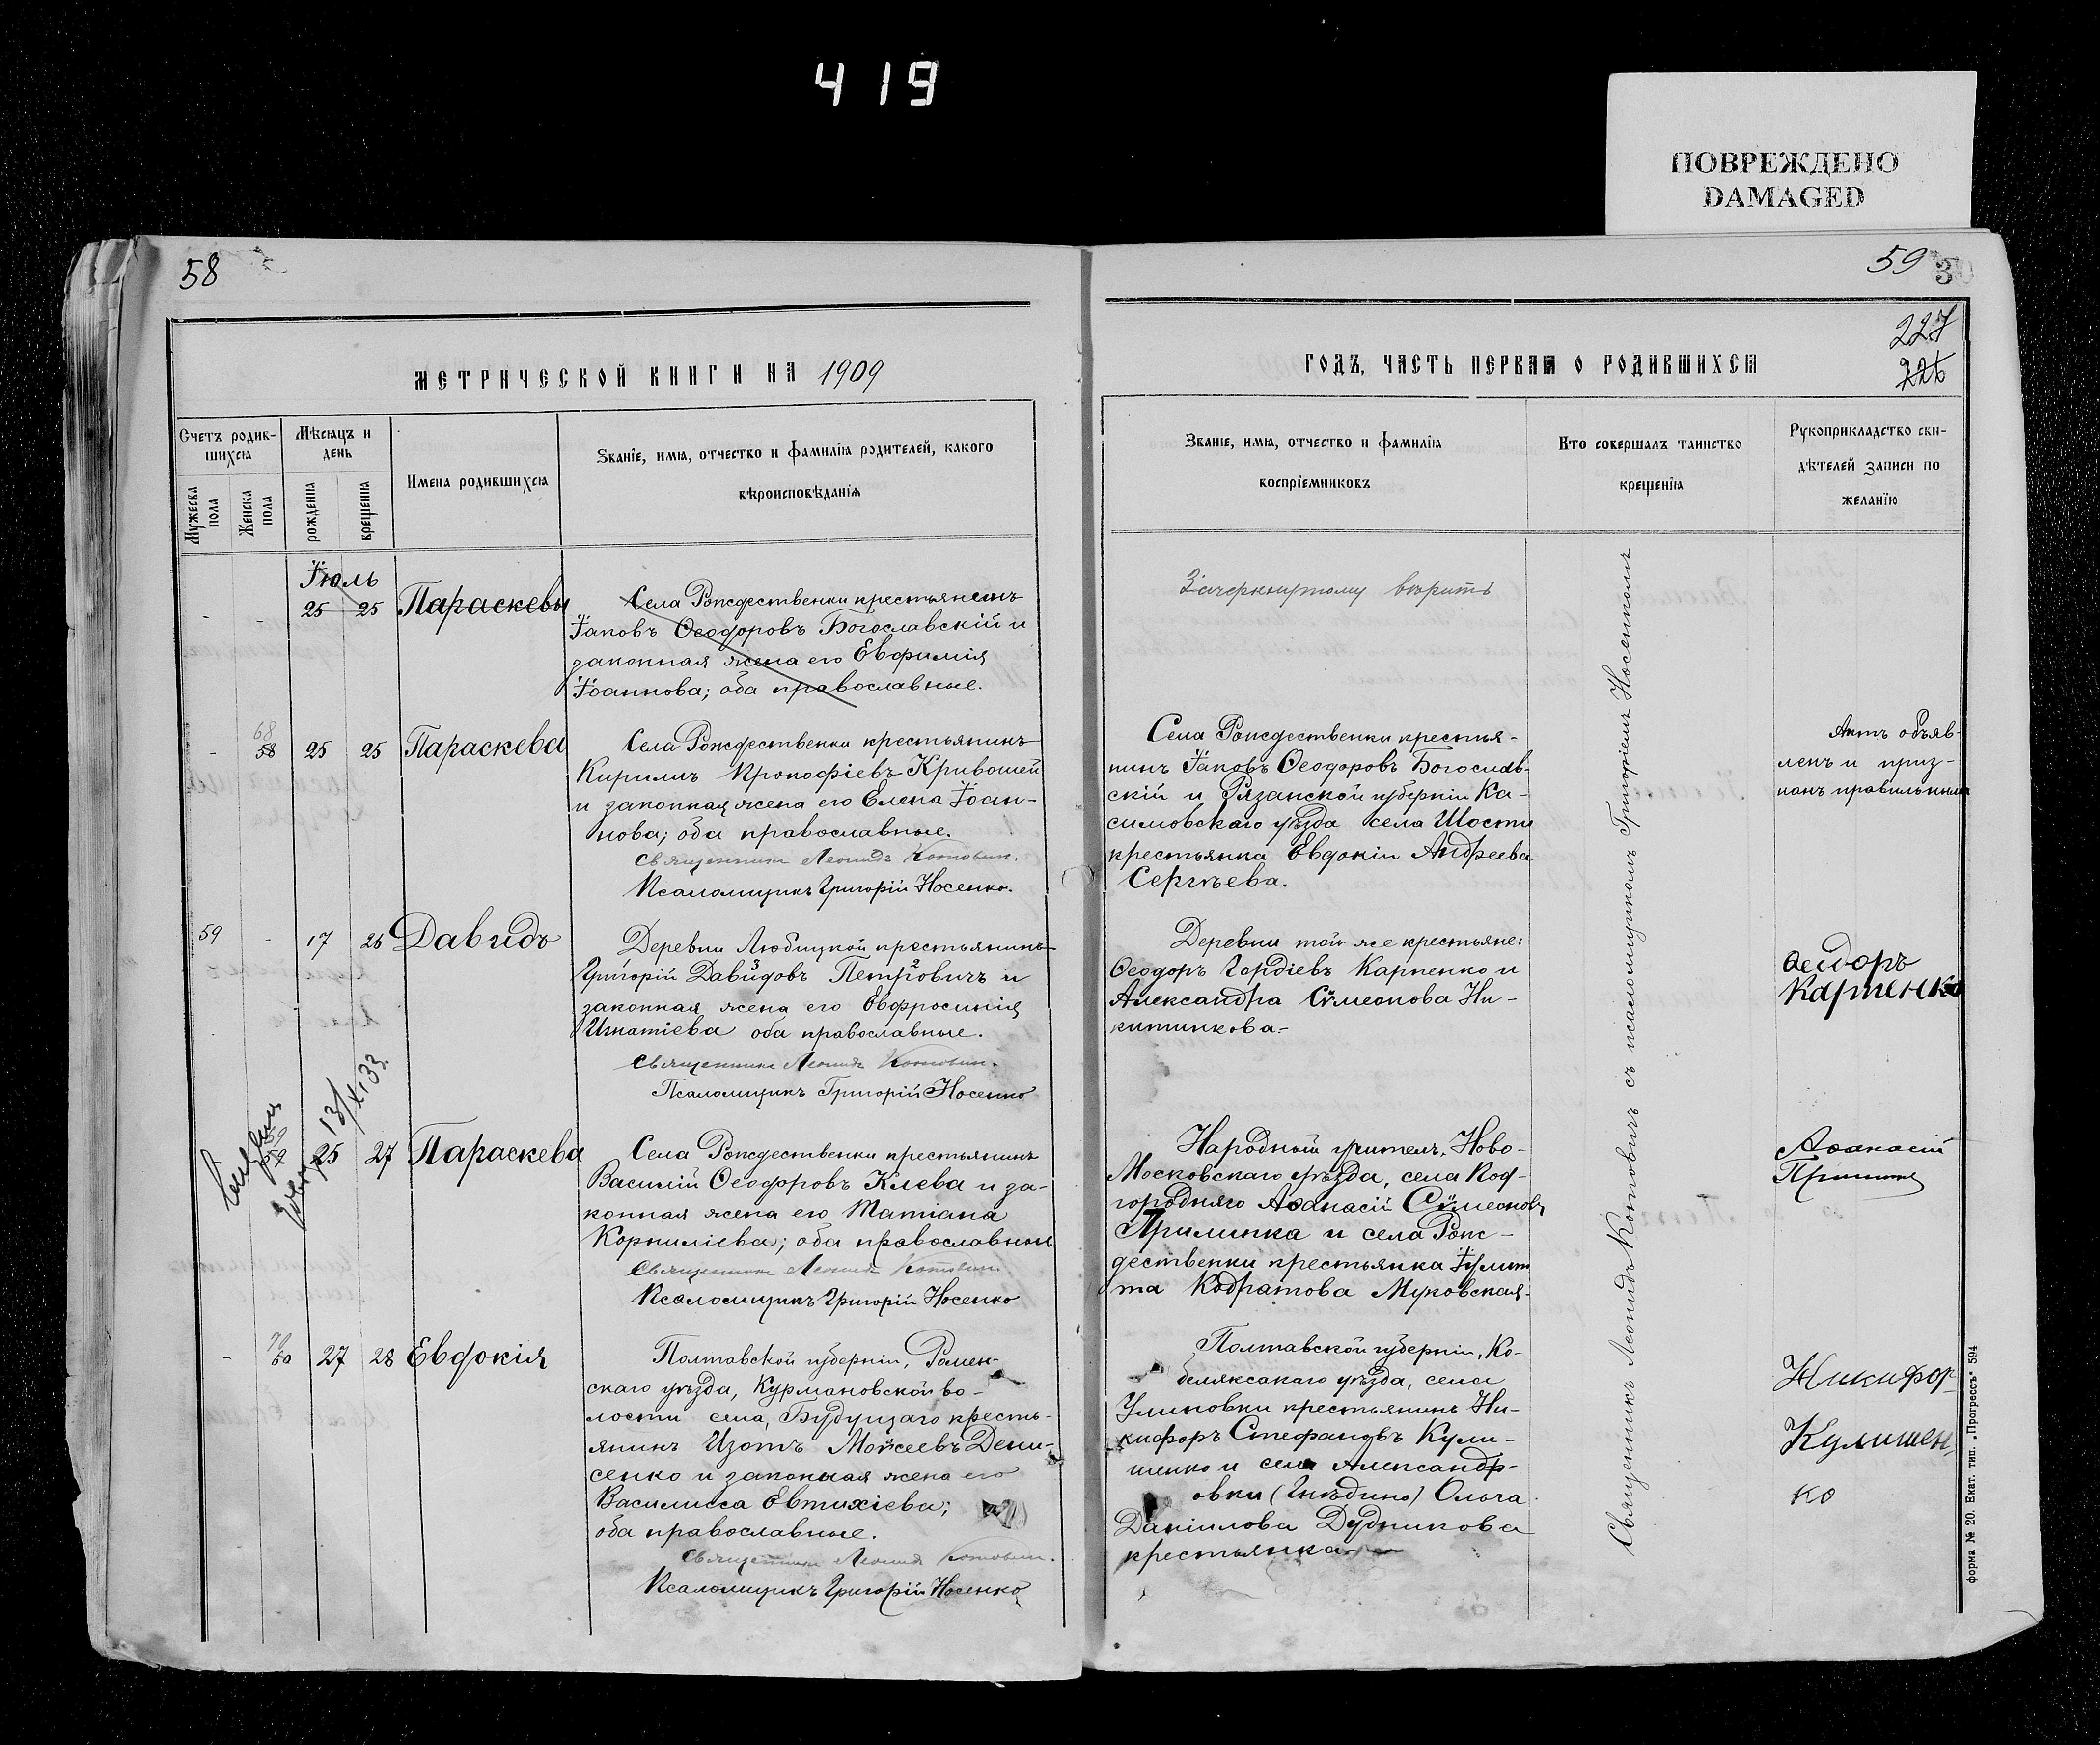 419
ПОВРЕЖДЕНО
DAMAGED
58
МЕТРИЧЕСКОЙ КНИГИ НА 1909
Счетъ родив-
шихся
Мѣсяцъ и
день
Мужеска
пола
Женска
пола
рожденія
крещенія
Имена родившихся
Званіе, имя, отчество и фамилія родителей, какого
вѣроисповѣданія
Іюль
25 25 Параскева
Села Рождественки крестьянинъ
Іаковъ Ѳеодоровъ Богославскій и
законная жена его Евфимія
Іоаннова; оба православные.
68
58 25 25 Параскева
Села Рождественки крестьянинъ
Кириллъ Прокофіевъ Кривошей
и законная жена его Елена Іоан-
нова; оба православные.
Священникъ Леонидъ Котовичъ.
Псаломщикъ Григорій Носенко.
59 - 17 26 Давидъ
Деревни Любицкой крестьянинъ
Григорій Давидовъ 3 Петровичъ 2 и
законная жена его Евфросинія
Игнатіева оба православные.
Священникъ Леонидъ Котовичъ.
Псаломщикъ Григорій Носенко
13/XI 33
25 27 Параскева
Села Рождественки крестьянинъ
Василій Ѳеодоровъ Клева и за-
конная жена его Татіана
Корниліева; оба православные
Священникъ Леонидъ Котовичъ
Псаломщикъ Григорій Носенко
70
- 60 27 28 Евдокія
Полтавской губерніи, Ромен-
скаго уѣзда, Курмановской во-
лости села, Будущаго кресть-
янинъ Изотъ Моѵсеевъ Дени-
сенко и законная жена его
Василисса Евтихіева;
оба православные.
Священникъ Леонидъ Котовичъ.
Псаломщикъ Григорій Носенко
59
227
226
ГОДЪ, ЧАСТЬ ПЕРВАЯ О РОДИВШИХСЯ
Званіе, имя, отчество и фамилія
воспріемниковъ
Кто совершалъ таинство
крещенія
Рукоприкладство сви-
дѣтелей записи по
желанію
Зачеркнутому вѣрить
Села Рождественки крестья-
нинъ Іаковъ Ѳеодоровъ Богослав-
скій и Рязанской губерніи Ка-
симовскаго уѣзда села Шости
крестьянка Евдокіи Андреева
Сергѣева.
Актъ объяв-
ленъ и приз-
нанъ правильнымъ
Деревни той же крестьяне:
Ѳеодоръ Гордіевъ Карпенко и
Александра Сѵмеонова Ни-
китикова-
Ѳедоръ
Карпенко
Народный учитель, Ново-
Московскаго уѣзда, села Под-
городняго Аѳанасій Сѵмеоновъ
Прилипка и села Рож-
дественки крестьянка Іулит
та Кодратова Муковская.
Аѳанасій
Полтавской губерніи, Ко-
беляксакаго уѣзда, села
Улиновки крестьянинъ Ни-
кифоръ Стефановъ Кули-
шенко и села Александр-
овки (Гнѣдино) Ольга
Даніилова Дудникова
крестьянка
Никифор
Кулишен
ко
Священникъ Леонидъ Котовичъ съ псаломщикомъ Григоріемъ Носенкомъ
форма № 20. Екат. тип. „Прогрессъ" 594